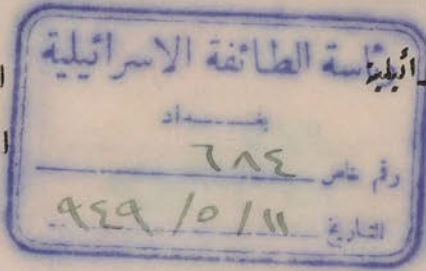 رئاسة الطائفة الاسرائيلية
بغـــداد
رقم خاص ٦٨٤
التاريخ ١١ / ٥ / ٩٤٩